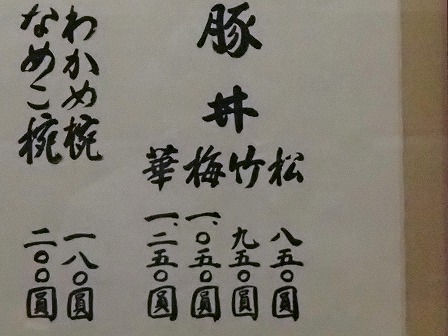 豚丼
松 八五〇圓
竹 九五〇圓
梅 一、〇五〇圓
華 一、二五〇圓
わかめ椀 一八〇圓
なめこ椀 二〇〇圓